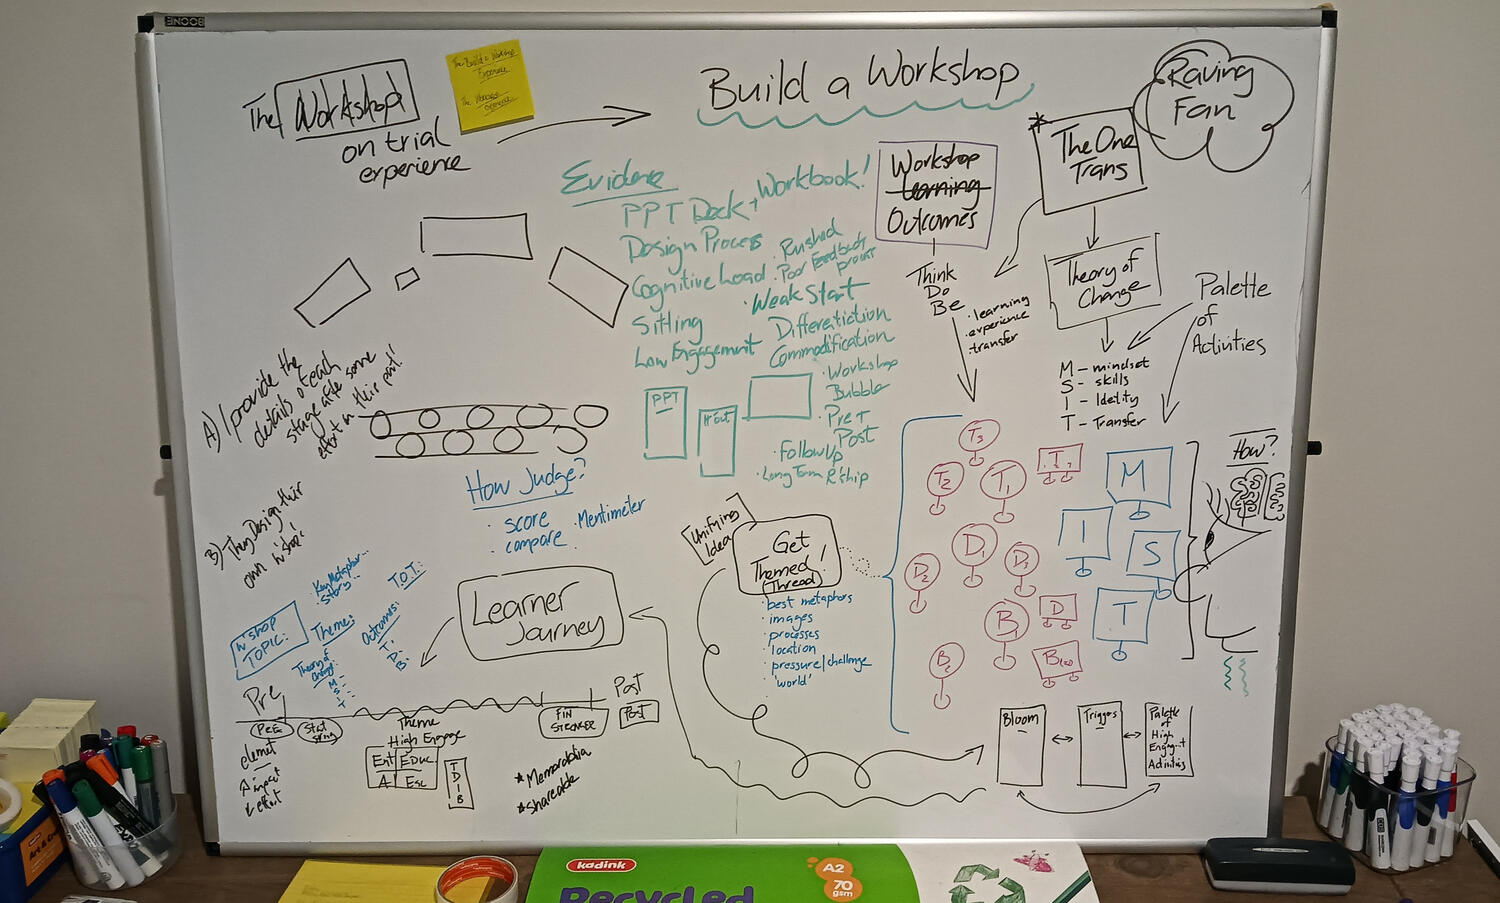 BOONE
The Workshop
on trial
experience
The Build a Workshop
Experience
The Workshop
Experience
Build a Workshop
Raving
Fan
The One
Trans
Workshop
Learning
Outcomes
Think
Do
Be
• learning
• experience
• transfer
Theory of
Change
Palette
of
Activities
M - mindset
S - skills
I - Idetity
T - Transfer
Evidence
PPT Deck + Workbook!
Design Process
Cognitive Load
Sitting
Low Engagement
• Rushed
• Poor Feedback
process
• Weak Start
Differetiction
Commodification
• Workshop
Bubble
• Pre +
Post
• Follow Up
• Long Term R'ship
PPT
H'out
A) I provide the
details of each
stage after some
effort on their part!
B) They Design their
own w'shop!
How Judge?
• score
• compare
• Mentimeter
Unifying
Idea
Get
Themed!
(Thread)
• best metaphors
• images
• processes
• location
• pressure/challenge
• 'world'
T3
T2
T1
D1
D2
D3
B1
B2
D
M
I
S
T
How?
Learner
Journey
W'shop
TOPIC:
Key Metaphor...
Story...
Theme:
Theory of
Change:
M -
S -
I -
T -
Outcomes:
T:
D:
B:
T.O.T:
Pre
PRE
Start
Strong
Theme
High Engage
Ent
EDUC
A
Esc
T
D
I
B
FIN
STRONGER
Post
POST
elemet
↑ impact
↓ effort
* Memorabilia
* Shareable
Bloom
Triggers
Palette
of
High
Engag't
Activities
kadink
Recycled
A2
70
gsm